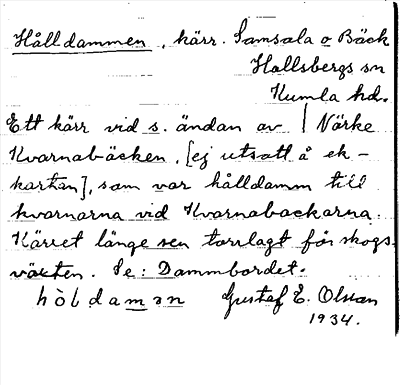 Hålldammen, kärr. Samsala o Bäck
Hallsbergs sn
Kumla hd.
Ett kärr vid s. ändan av | Närke
Kvarnabäcken, [ej utsatt å ek-
kartan], som var hålldamm till
kvarnarna vid Kvarnabackarna.
Kärret länge sen torrlagt för skogs-
växten. Se: Dammbordet.
hòldaman Gustaf E. Olsson
1934.